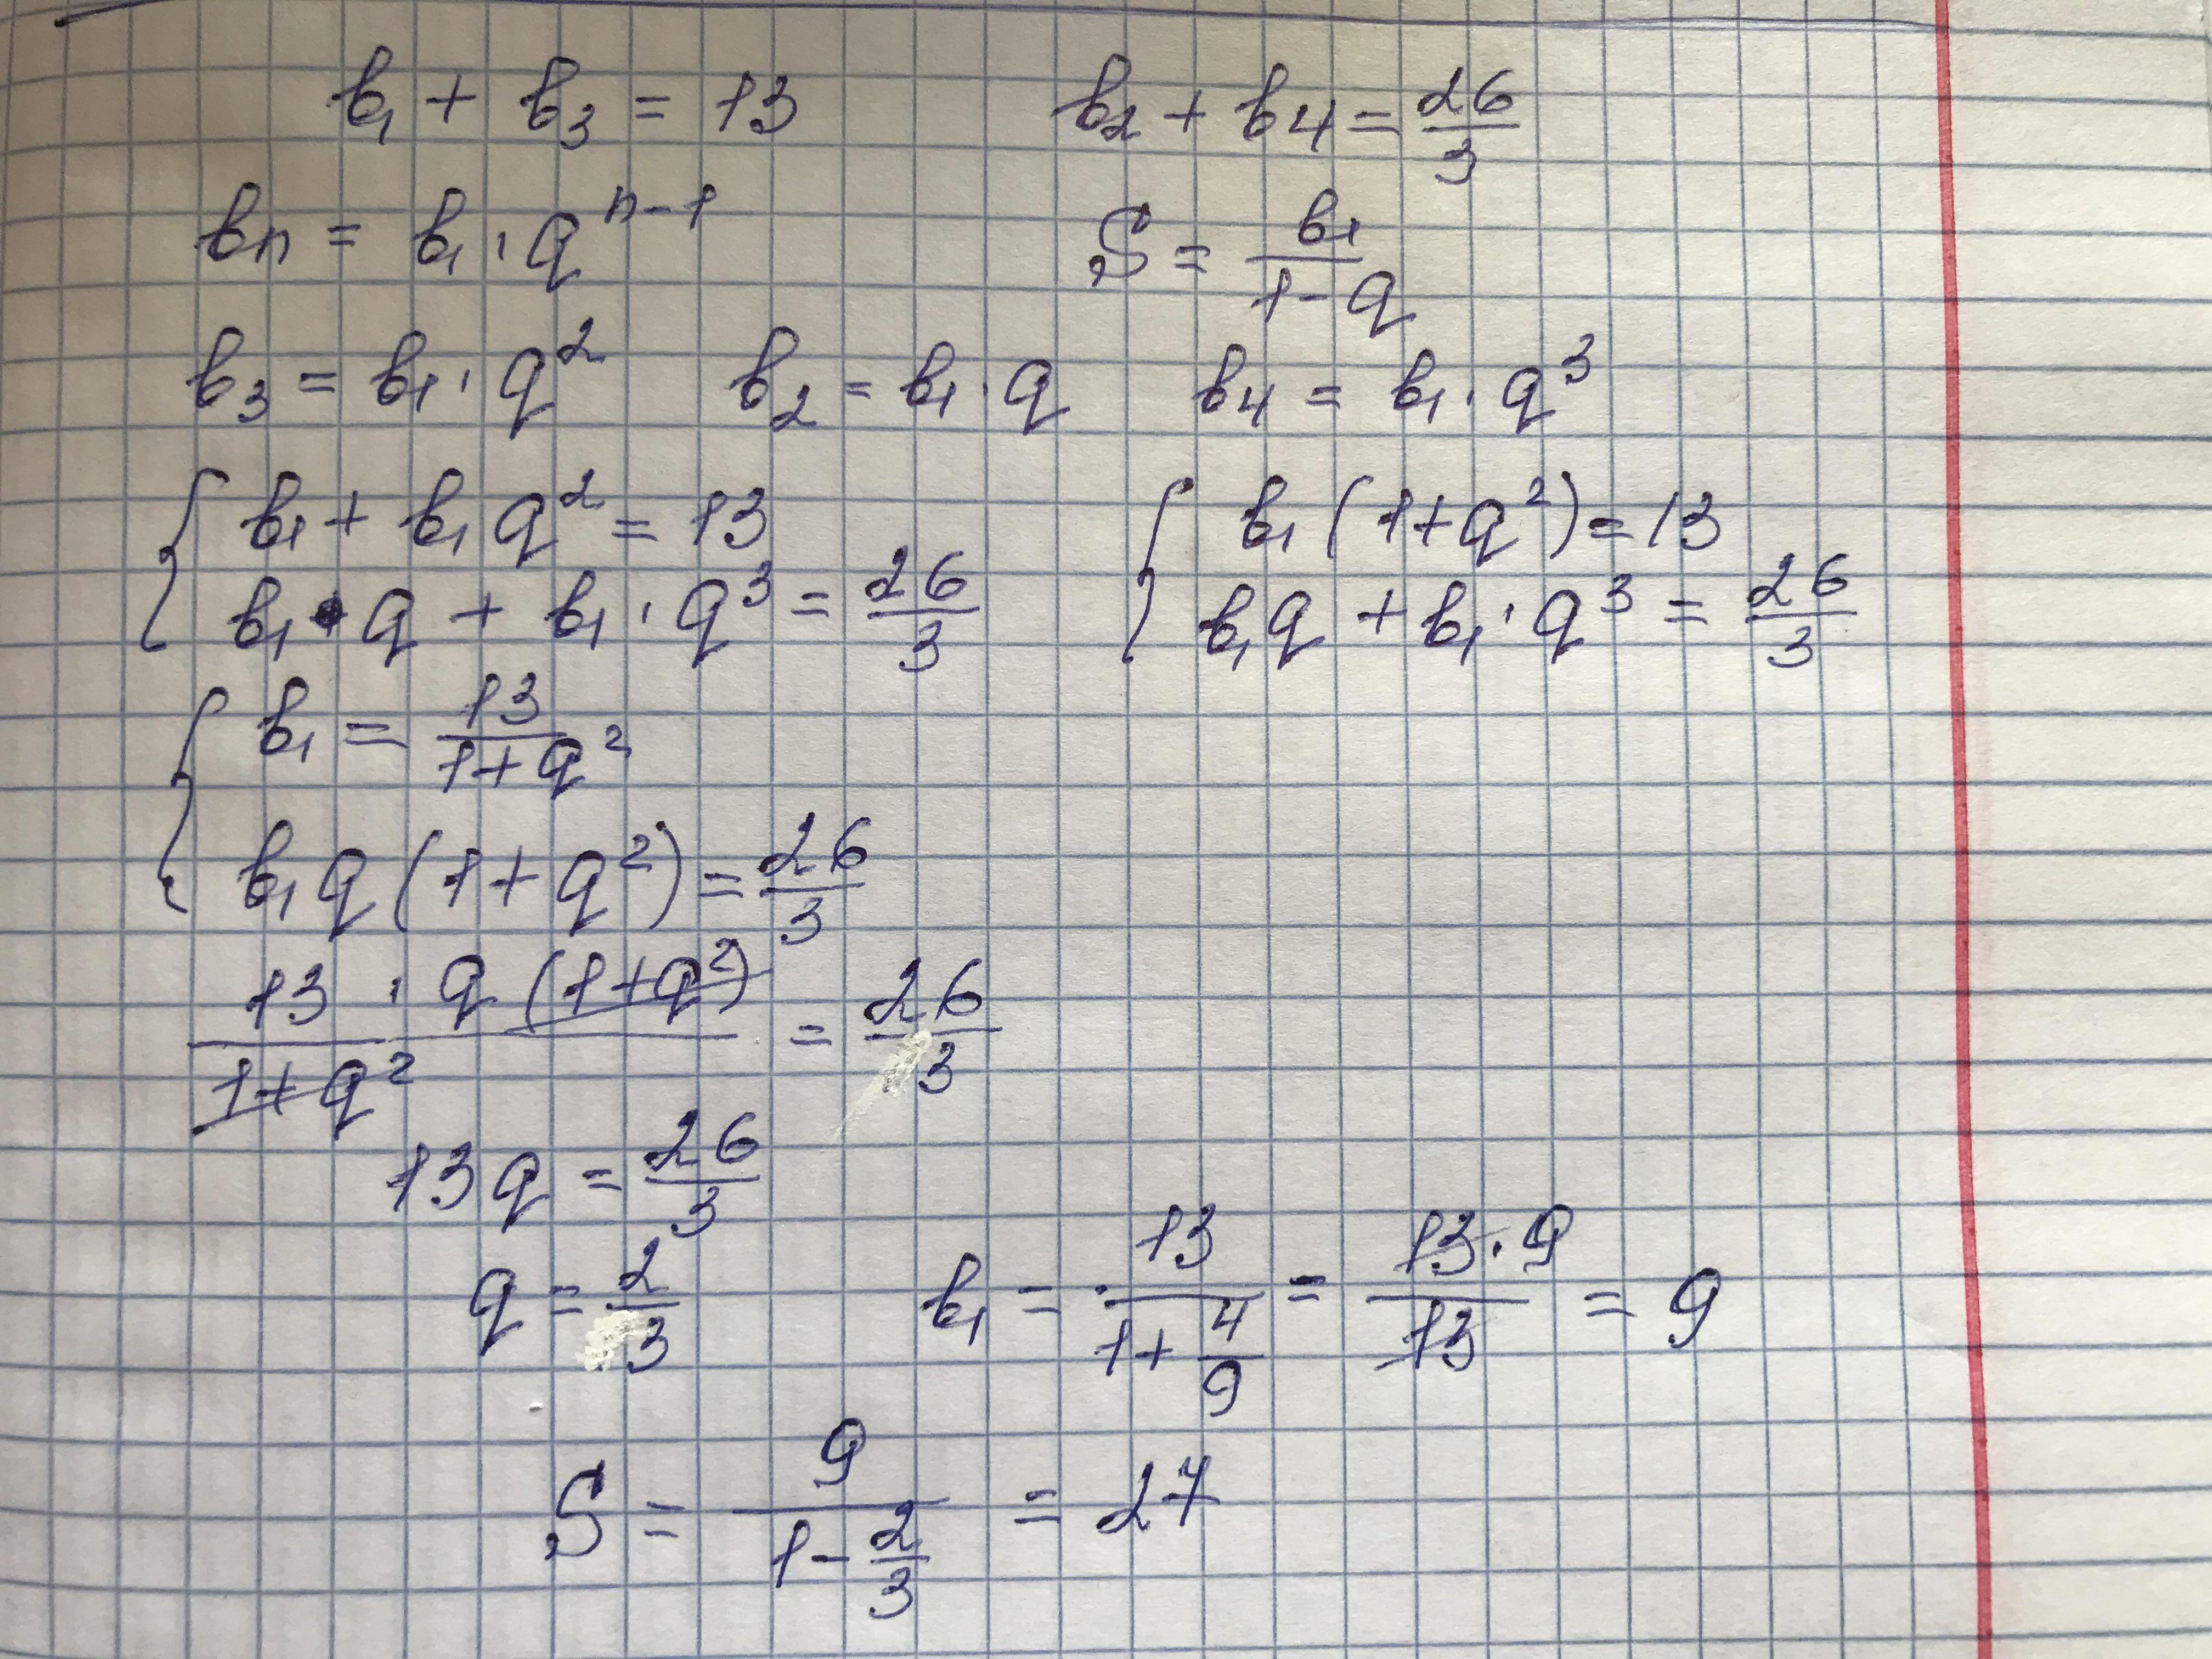 b₁ + b₃ = 13     b₂ + b₄ = 26/3
bₙ = b₁ · qⁿ⁻¹     S = b₁/(1 - q)
b₃ = b₁ · q²     b₂ = b₁ · q     b₄ = b₁ · q³
{ b₁ + b₁q² = 13     { b₁(1 + q²) = 13
b₁ · q + b₁ · q³ = 26/3     b₁q + b₁ · q³ = 26/3
{ b₁ = 13/(1 + q²)
b₁q(1 + q²) = 26/3
(13 · q(1 + q²))/(1 + q²) = 26/3
13q = 26/3
q = 2/3     b₁ = 13/(1 + 4/9) = (13 · 9)/13 = 9
S = 9/(1 - 2/3) = 27